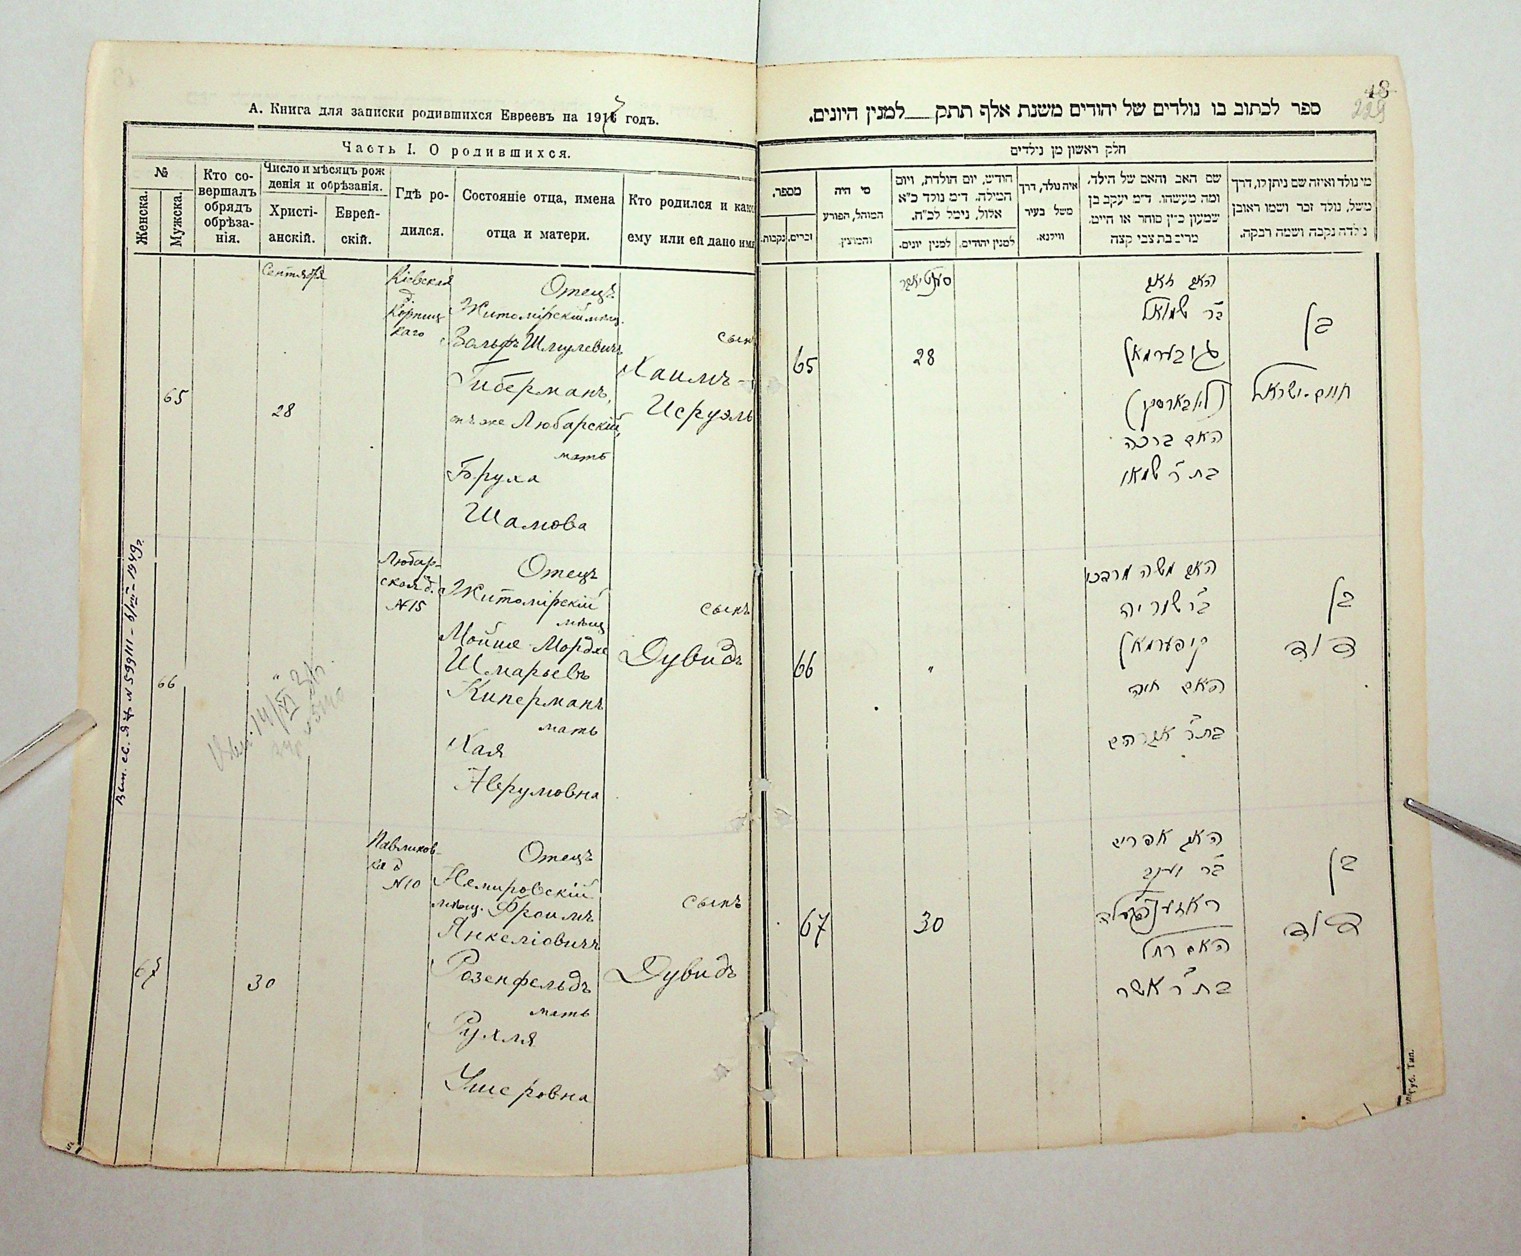 А. Книга для записки родившихся Евреевъ на 1917 годъ.
Часть I. О родившихся.
№
Женска.
Мужска.
Кто со-
вершалъ
обрядъ
обрѣза-
нія.
Число и мѣсяцъ рож
денія и обрѣзанія.
Христі-
анскій.
Еврей-
скій.
Гдѣ ро-
дился.
Состояніе отца, имена
отца и матери.
Кто родился и како
ему или ей дано имя
Сентября
65
28
Кіевская
д
Корниц
каго
Отецъ
Житомірскій мѣщ.
Вольфъ Шмулевичъ
Гиберманъ,
онъ же Любарскій,
мать
Бруха
Шамова
сынъ
Хаимъ-
Исруэль
66
"
Любар-
ская д.
№15
Отецъ
Житомірскій
мѣщ
Мойше Мордхе
Шмарьевъ
Киперманъ
мать
Хая
Аврумовна
сынъ
Дувидъ
67
30
Павликов-
ка д
№10
Отецъ
Немировскій
мѣщ. Фроимъ
Янкеліовичъ
Розенфельдъ
мать
Рухля
Ушеровна
сынъ
Дувидъ
18
229
ספר לכתוב בו נולדים של יהודים משנת אלף תתק___למנין היונים.
חלק ראשון מן נילדים
מספר.
זכרים.
נקבות.
מי היה
המוהל, הפורע
והמוצץ.
חודש, יום הולדת, ויום
המילה. ד״מ נולד כ״א
אלול, נימל לכ״ח.
למנין יונים.
למנין יהודים.
איה נולד, דרך
משל בעיר
ווילנא.
שם האב והאם של הילד.
ומה מעשהו. ד״מ יעקב בן
שמעון כ״ץ סוחר או חייט.
מרים בת צבי קצה
מי נולד ואיזה שם ניתן לו, דרך
משל, נולד זכר ושמו ראובן
נולדה נקבה ושמה רבקה.
65
28
האב זאב
ב״ר שמואל
גיבערמאן
(ליובארסקי)
האם ברכה
בת ר׳
בן
חיים-ישראל
66
"
האב משה מרדכי
ב״ר שמריה
קיפערמאן
האם חיה
בת ר׳ אברהם
בן
דוד
67
30
האב אפרים
ב״ר יעקב
ראזענפעלד
האם רחל
בת ר׳ אשר
בן
דוד